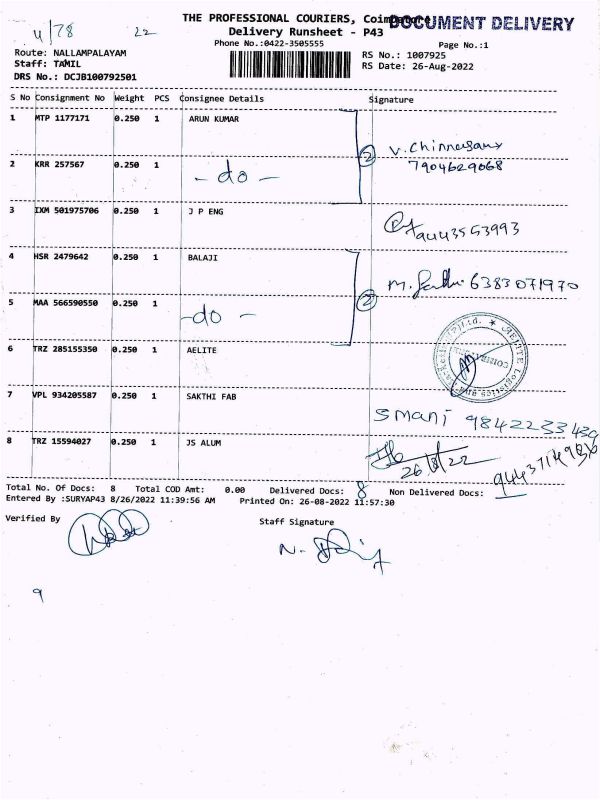 THE PROFESSIONAL COURIERS, Coimbatore
DOCUMENT DELIVERY
4/78 22
Delivery Runsheet - P43
Phone No.:0422-3505555
Page No.:1
Route: NALLAMPALAYAM
RS No.: 1007925
Staff: TAMIL
RS Date: 26-Aug-2022
DRS No.: DCJB100792501
S No Consignment No Weight PCS Consignee Details Signature
1 MTP 1177171 0.250 1 ARUN KUMAR
2 V. Chinnasamy
7904629068
2 KRR 257567 0.250 1 - do -
3 IXM 501975706 0.250 1 J P ENG
9443553993
4 HSR 2479642 0.250 1 BALAJI
2 M. 6383071970
5 MAA 566590550 0.250 1 - do -
6 TRZ 285155350 0.250 1 AELITE
AELITE Logistics
7 VPL 934205587 0.250 1 SAKTHI FAB
S Mani 9842233430
8 TRZ 15594027 0.250 1 JS ALUM
26/8/22
Total No. Of Docs: 8 Total COD Amt: 0.00 Delivered Docs: 8 Non Delivered Docs:
Entered By :SURYAP43 8/26/2022 11:39:56 AM Printed On: 26-08-2022 11:57:30
Verified By
Staff Signature
9